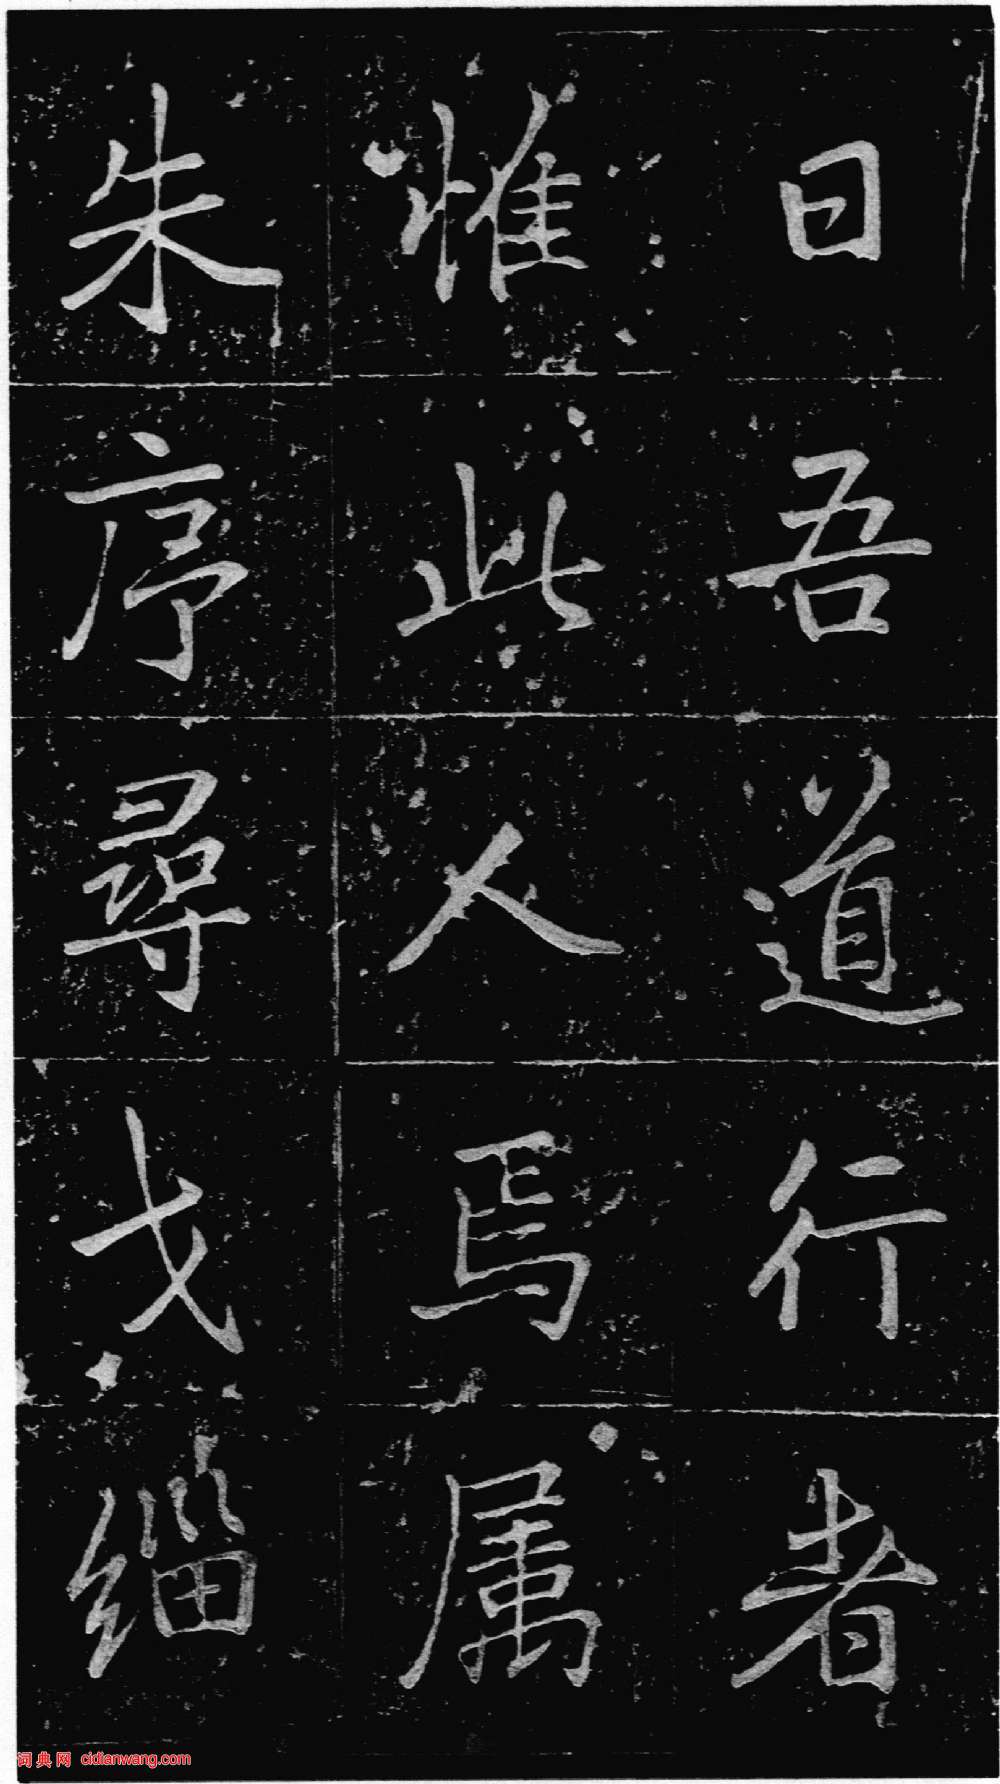 曰吾道行者
惟此人焉属
朱序尋戈緇
词典网 cidianwang.com